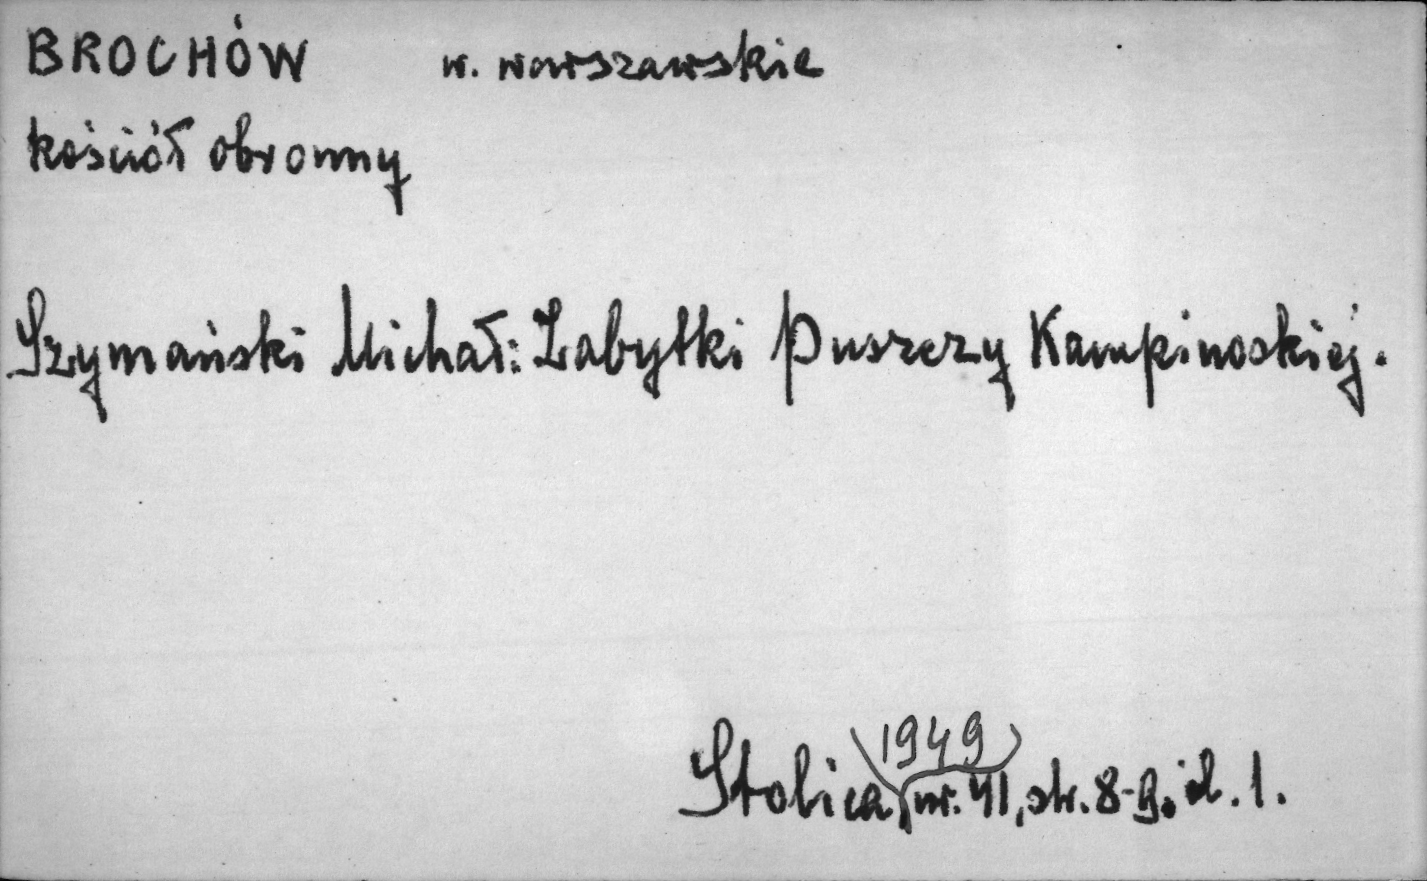 BROCHÓW w. warszawskie
kościół obronny
Szymański Michał: Zabytki Puszczy Kampinoskiej.
1949
Stolica, nr. 41, str. 8-9, il. 1.